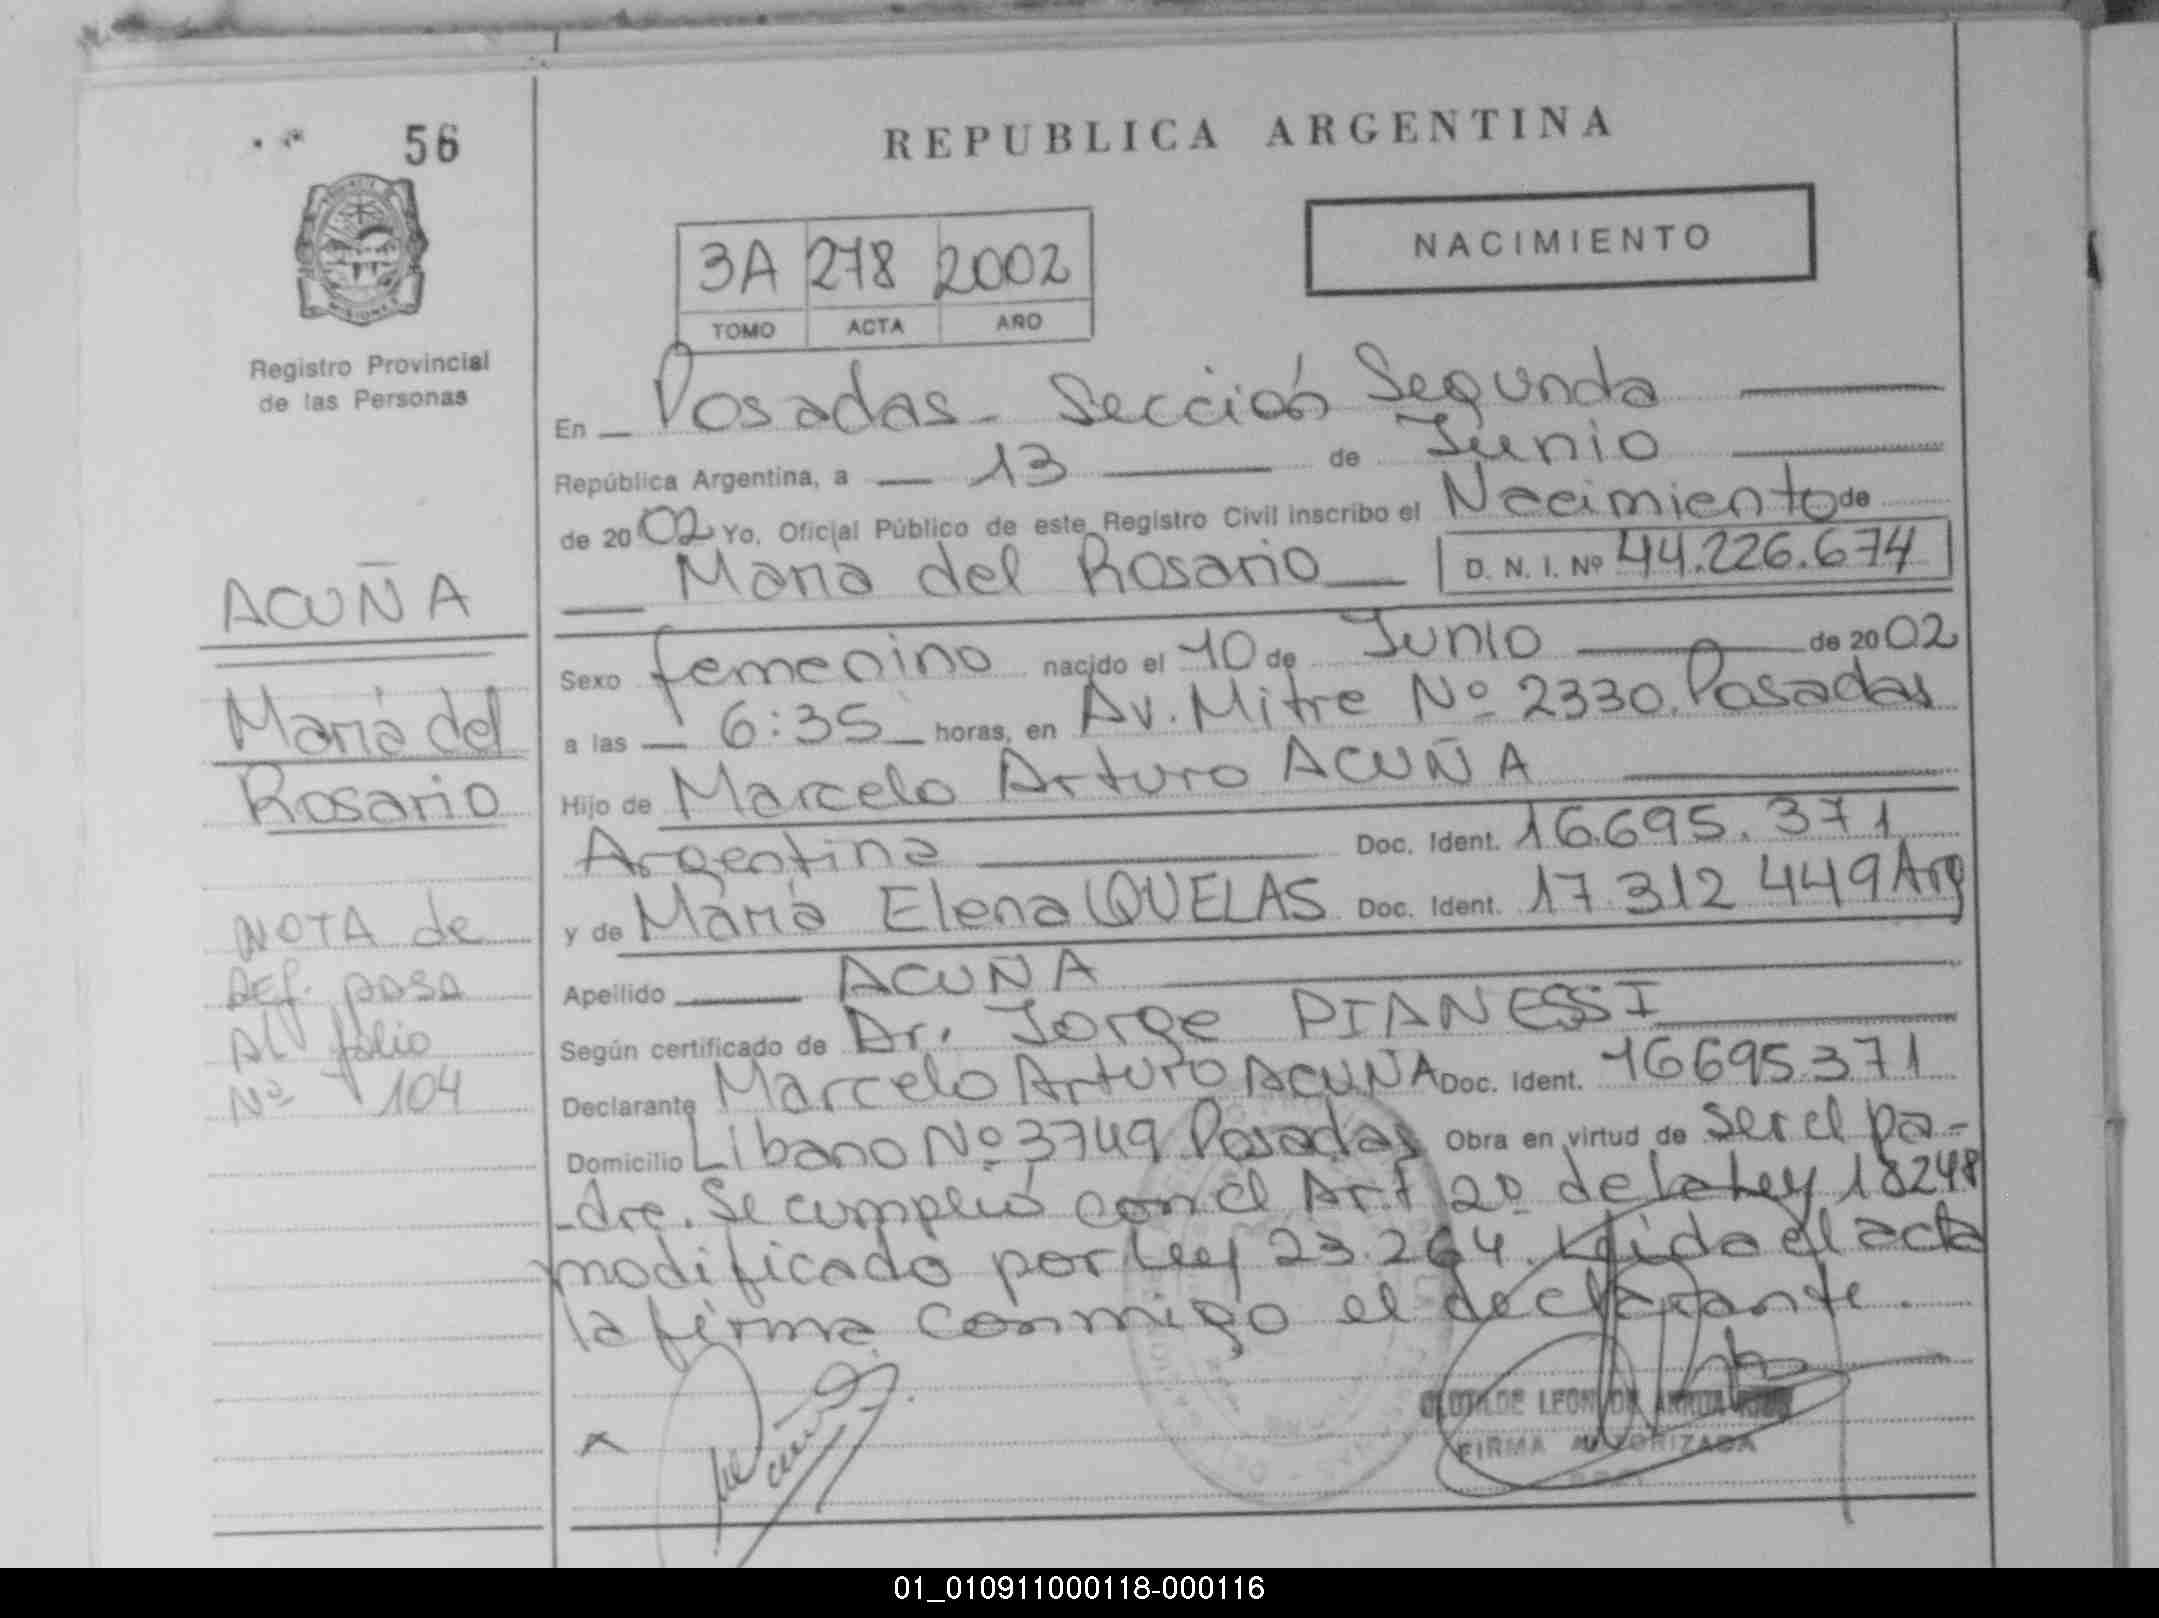 56
REPUBLICA ARGENTINA
NACIMIENTO
3A 278 2002
TOMO ACTA AÑO
Registro Provincial
de las Personas
ACUÑA
María del
Rosario
NOTA de
REf. pasa
AL folio
Nº 104
En Posadas - Sección Segunda
República Argentina, a 13 de Junio
de 2002 Yo, Oficial Público de este Registro Civil inscribo el Nacimiento de
María del Rosario D. N. I. Nº 44.226.674
Sexo femenino nacido el 10 de Junio de 2002
a las 6:35 horas, en Av. Mitre Nº 2330. Posadas
Hijo de Marcelo Arturo ACUÑA
Argentina Doc. Ident. 16.695.371
y de María Elena QUELAS Doc. Ident. 17.312.449 Arg
Apellido ACUÑA
Según certificado de Dr. Jorge PIANESSI
Declarante Marcelo Arturo ACUÑA Doc. Ident. 16695.371
Domicilio Libano Nº 3749 Posadas Obra en virtud de ser el pa-
-dre. Se cumplió con el Art 2º de la Ley 18248
modificado por Ley 23.264. Leida el acta
la firma conmigo el declarante.
CLOTILDE LEON DE
FIRMA AUTORIZADA
01_010911000118-000116